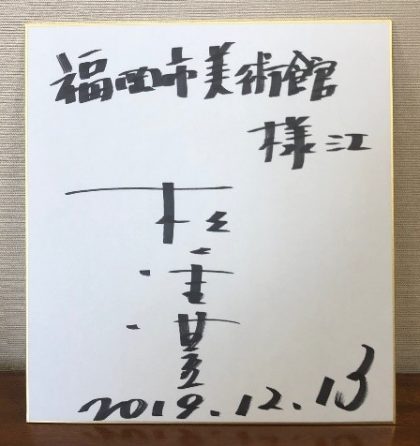 福岡市美術館
様江
松重豊
2019.12.13